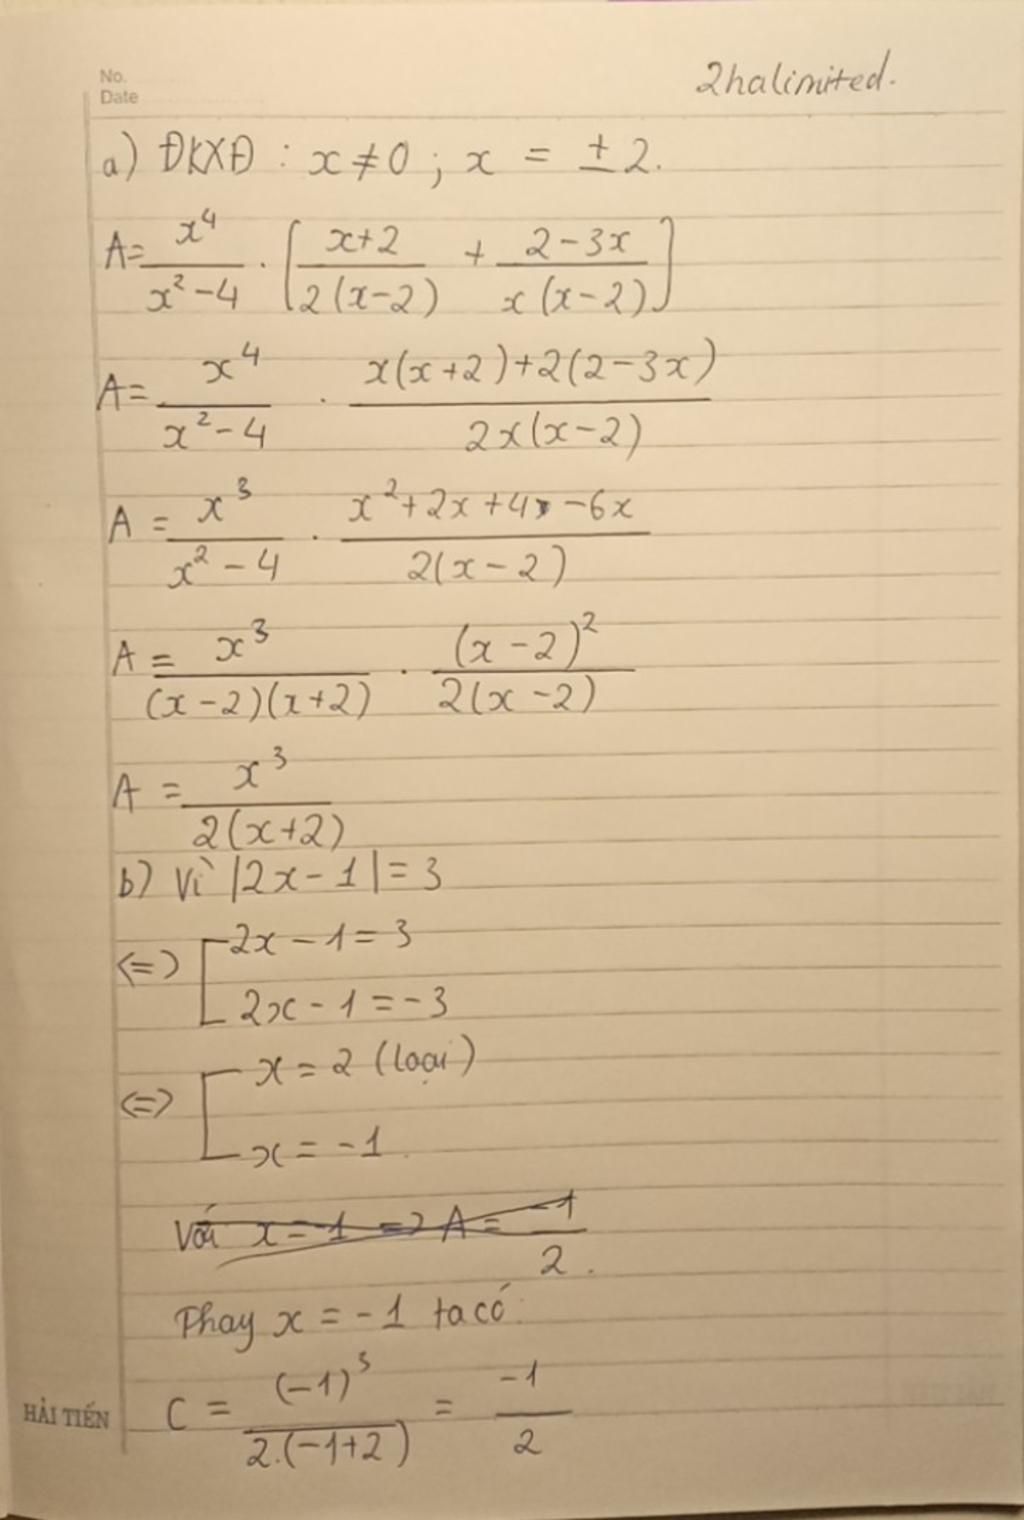 No.
Date
2halimited.
a) ĐKXĐ : x ≠ 0 ; x = ± 2.
A = x⁴/(x² - 4) . [(x+2)/(2(x-2)) + (2-3x)/(x(x-2))]
A = x⁴/(x² - 4) . (x(x+2)+2(2-3x))/(2x(x-2))
A = x³/(x² - 4) . (x²+2x+4-6x)/(2(x-2))
A = x³/((x-2)(x+2)) . (x-2)²/(2(x-2))
A = x³/(2(x+2))
b) Vì |2x-1| = 3
<=> [ 2x - 1 = 3
2x - 1 = -3
<=> [ x = 2 (loại)
x = -1.
Với x = -1 => A = -1/2.
Thay x = -1 ta có:
C = (-1)³/(2.(-1+2)) = -1/2
HẢI TIẾN